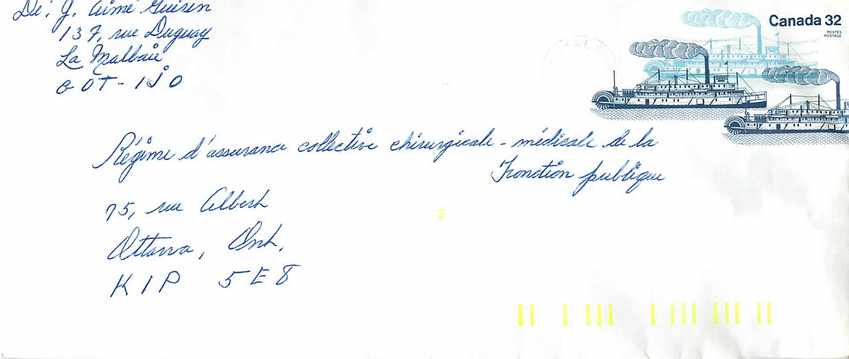 De: J. Aimé Guérin
137, rue Duguay
La Malbaie
G0T-1J0
Canada 32
POSTES
POSTAGE
Régime d'assurance collective chirurgicale-médicale de la
Fonction publique
75, rue Albert
Ottawa, Ont.
K1P 5E8